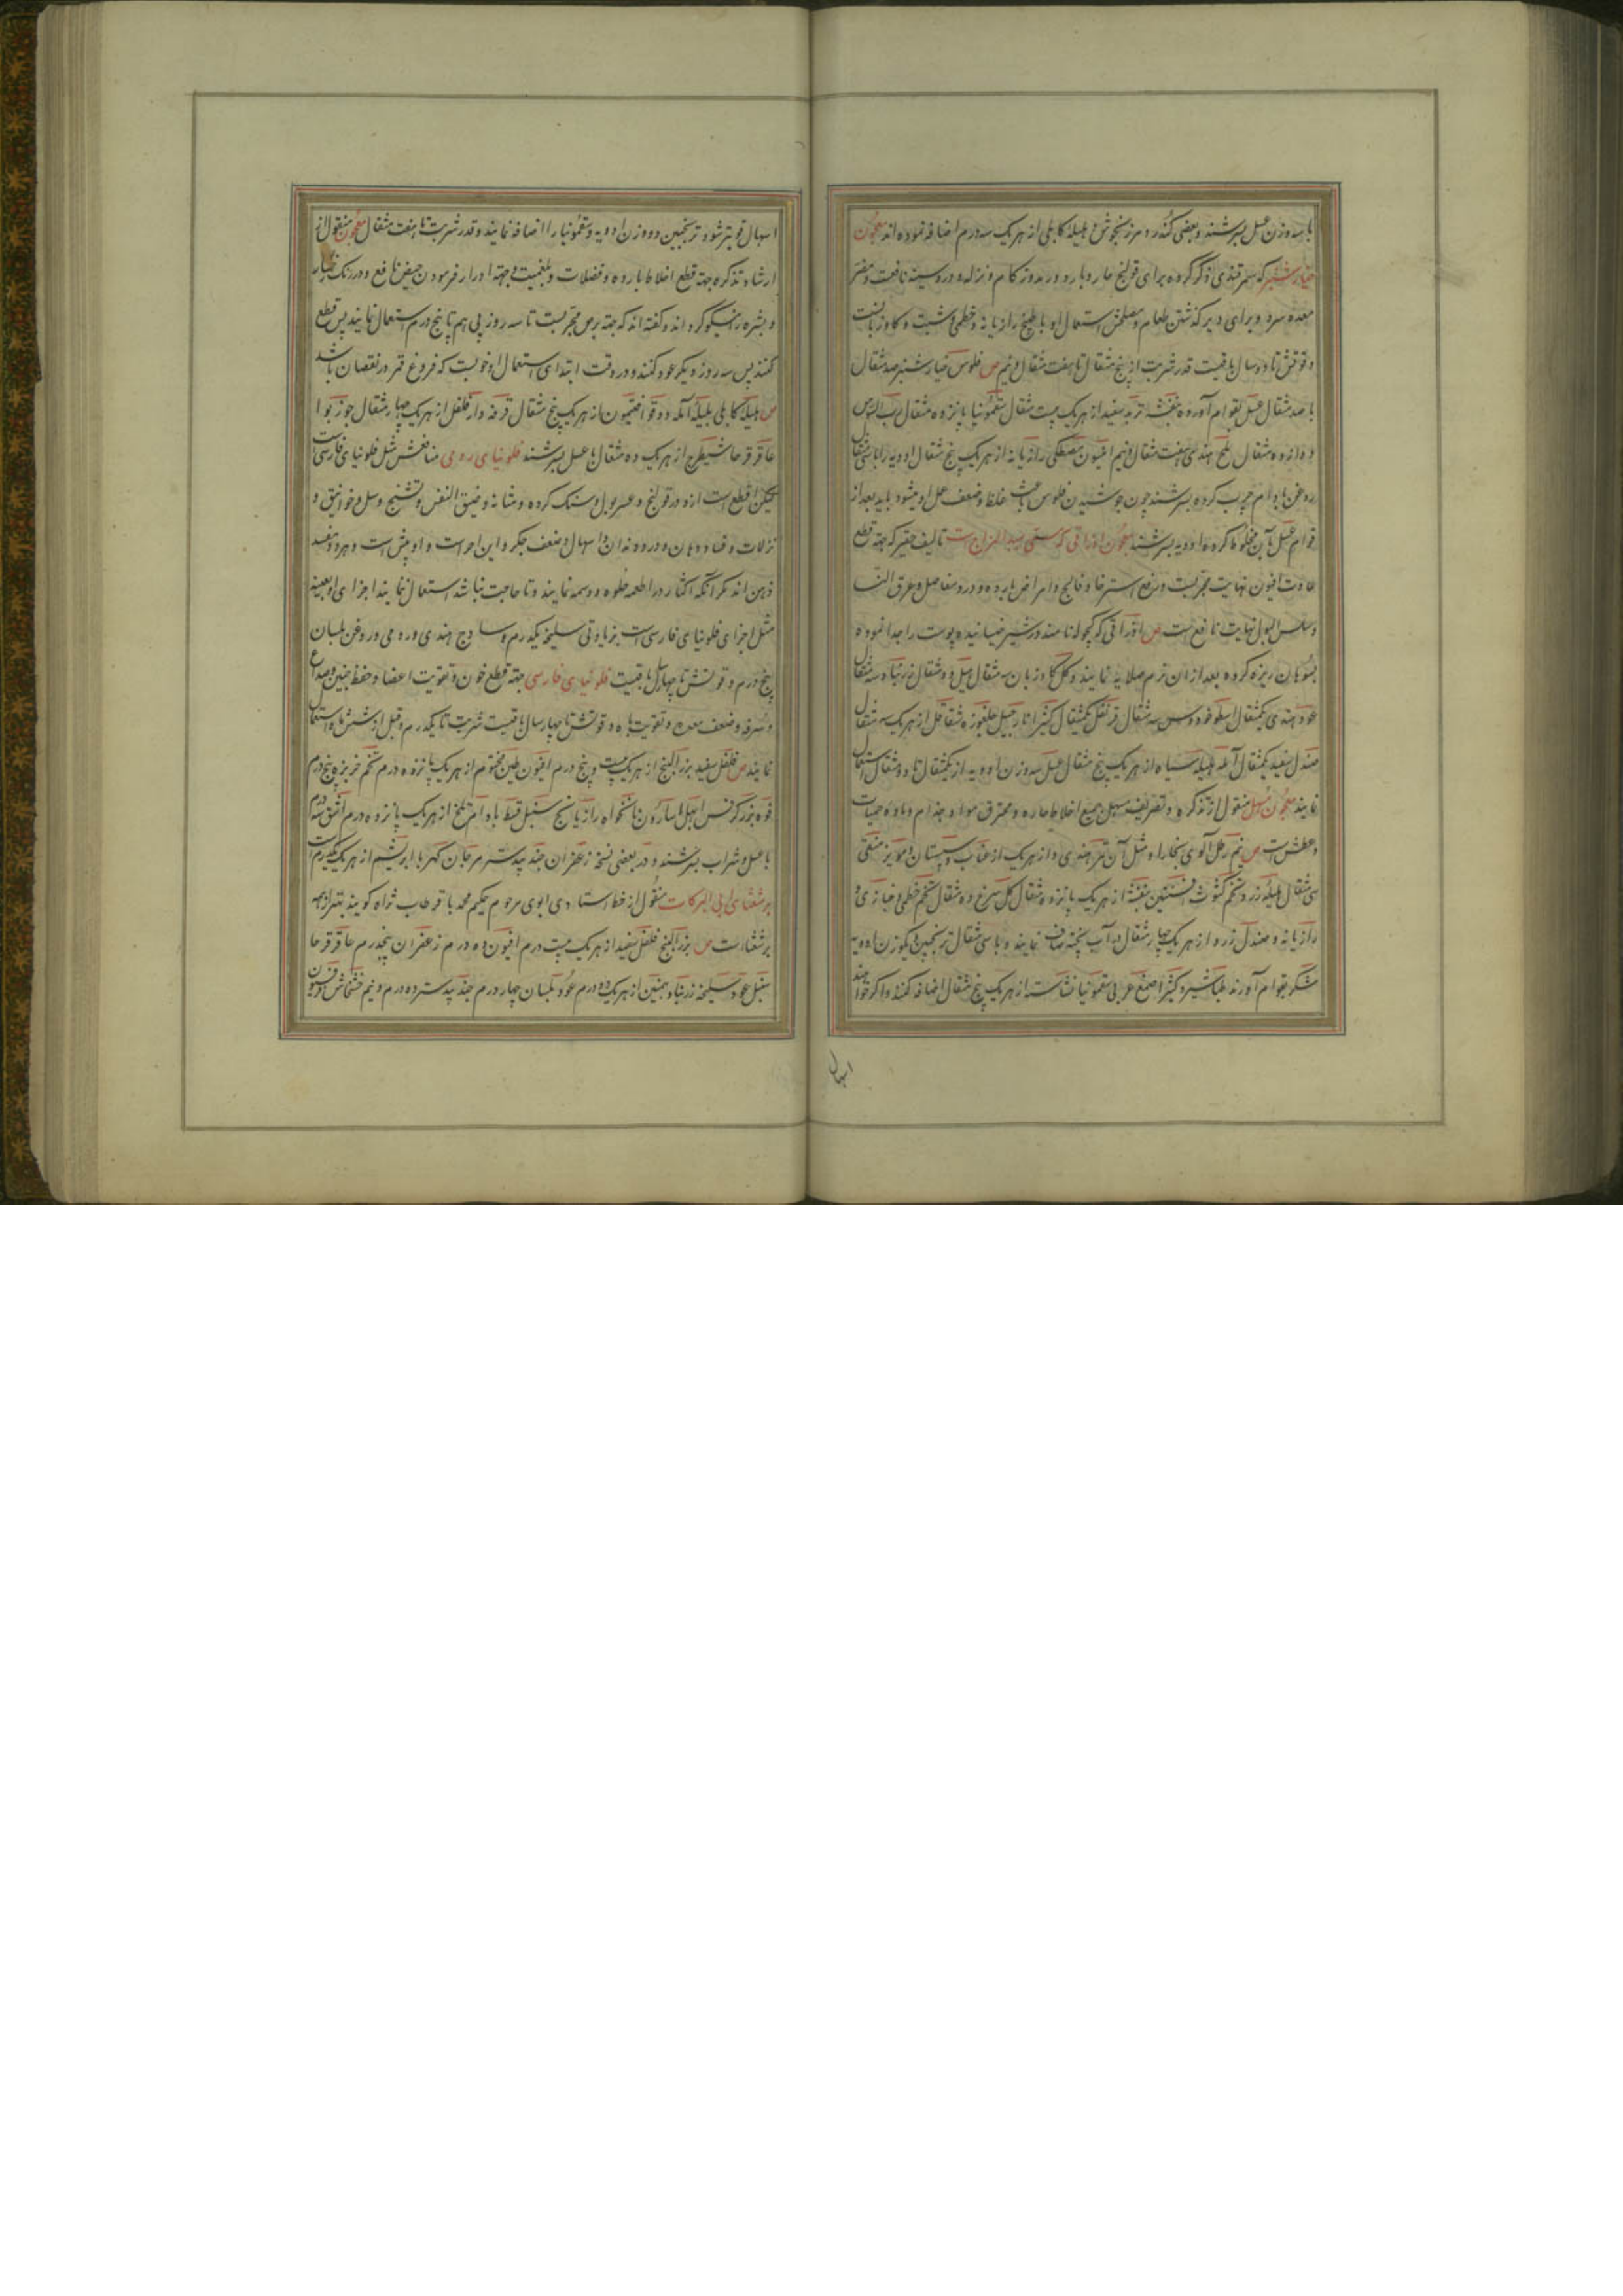 با سه وزن عسل بسرشند و بعضی کندر و مرزنجوش و هلیله کابلی از هر یک سه درم اضافه نموده اند معجون
خیار شنبر که سمرقندی ذکر کرده برای قولنج حار و بارد و درد و زکام و نزله و درد سینه نافعست و مضر
معده سرد و برای دیر گذشتن طعام و مصلحش استعمال او با طبیخ رازیانه و خطمی و شبت و گاوزبانست
و قوتش تا دو سال باقیست قدر شربت از پنج مثقال تا هفت مثقال و نیم ص فلوس خیار شنبر صد مثقال
با صد مثقال عسل بقوام آورده بنفشه تربد سفید از هر یک بیست مثقال سقمونیا پانزده مثقال رب السوس
دوازده مثقال ملح هندی هفت مثقال و نیم انیسون مصطکی رازیانه از هر یک پنج مثقال ادویه را با سی مثقال
روغن بادام چرب کرده بسرشند چون جوشیدن فلوس باعث غلظ و ضعف عمل او میشود باید بعد از
قوام عسل بآن مخلوط کرده ادویه بسرشند معجون اذراقی که مسمی بسید المعاجین است تالیف حقیر که جهة قطع
عادت افیون نهایت مجربست و رفع استرخا و فالج و امراض بارده و درد مفاصل و عرق النسا
و سلس البول نهایت نافع است ص اذراقی که کچوله نامند در شیر خیسانیده پوست را جدا نموده
بسوهان ریزه کرده بعد از آن نرم صلایه نمایند و گل گاوزبان سه مثقال هیل دو مثقال زرنباد سه مثقال
عود هندی یکمثقال اسطوخودوس سه مثقال قرنفل یکمثقال کثیرا نارجیل چلغوزه شقاقل از هر یک سه مثقال
صندل سفید یکمثقال آمله هلیله سیاه از هر یک پنج مثقال عسل سه وزن ادویه از یکمثقال تا دو مثقال استعمال
نمایند معجون مسهل منقول از تذکره و تصریف مسهل جمیع اخلاط حاره و محترق مواد جذام و باد و حمیات
و عطش است ص نیم رطل آلوی بخارا و مثل آن تمر هندی و از هر یک از عناب و سپستان و مویز منقی
سی مثقال هلیله زرد تخم کشوث افسنتین بنفشه از هر یک پانزده مثقال گل سرخ ده مثقال تخم خطمی و خبازی و
رازیانه و صندل زرد از هر یک چهار مثقال در آب پخته صاف نمایند و با سی مثقال ترنجبین و یکوزن ادویه
شکر بقوام آورند طباشیر و کثیرا صمغ عربی سقمونیا نشاسته از هر یک پنج مثقال اضافه کنند و اگر خواهند
اسهال
اسهال قویتر شود ترنجبین دو وزن ادویه و سقمونیا را اضافه نمایند و قدر شربت تا هفت مثقال معجون منقول از
ارشاد و تذکره جهة قطع اخلاط بارده و فضلات بلغمیت و جهة ادرار فرمودن حیض نافع و در رنگ رخسار
و بشره را نیکو کرداند و گفته اند که جهة برص مجربست تا سه روز پی هم تا پنج درم استعمال نمایند پس قطع
کنند پس سه روز دیگر عود کنند و در وقت ابتدای استعمال او خوبست که فروغ قمر در نقصان باشد
ص هلیله کابلی بلیله آمله دوقو افتیمون از هر یک پنج مثقال قرفه دار فلفل از هر یک چهار مثقال جوز بوا
عاقرقرحا شیطرج از هر یک ده مثقال با عسل بسرشند فلونیای رومی منافعش مثل فلونیای فارسی است
لیکن اقطع است ازو در قولنج و عسر بول و سنگ گرده و مثانه و ضیق النفس و تشنج و سل و خوانیق و
نزلات و فساد دهان و درد دندان و اسهال و ضعف جگر و این احر است و او بیش است و هر دو مفسد
ذهن اند مگر آنکه اکثار در اطعمه حلوه و دسمه نمایند و تا حاجت نباشد استعمال نمایند اجزای او بعینه
مثل اجزای فلونیای فارسی است بزیادتی سلیخه یکدرم و ساذج هندی و رومی و روغن بلسان
پنج درم و قوتش تا چهار سال باقیست فلونیای فارسی جهة قطع خون و تقویت اعضا و حفظ جنین و صداع
و سرفه و ضعف معده و تقویت باه و قوتش تا چهار سال باقیست شربت تا یکدرم و قبل از شش ماه استعمال
نمایند ص فلفل سفید بزر البنج از هر یک بیست و پنج درم افیون طین مختوم از هر یک پانزده درم تخم خربزه پنج درم
فوه بزر کرفس ابهل اسارون نانخواه رازیانج سنبل قسط بادام تلخ از هر یک پانزده درم
با عسل و شراب بسرشند و در بعضی نسخه زعفران جند بیدستر مرجان کهربا ابریشم از هر یک یکدرم است
برشعثای ابی البرکات منقول از خط استادی ابوی مرحوم حکیم محمد باقر طاب ثراه گویند بهتر از همه
برشعثا است ص بزر البنج فلفل سفید از هر یک بیست درم افیون ده درم زعفران پنجدرم عاقرقرحا
سنبل عود سلیخه زرنباد بهمنین از هر یک دو درم عود بلسان چهار درم جند بیدستر ده درم و نیم خشخاش